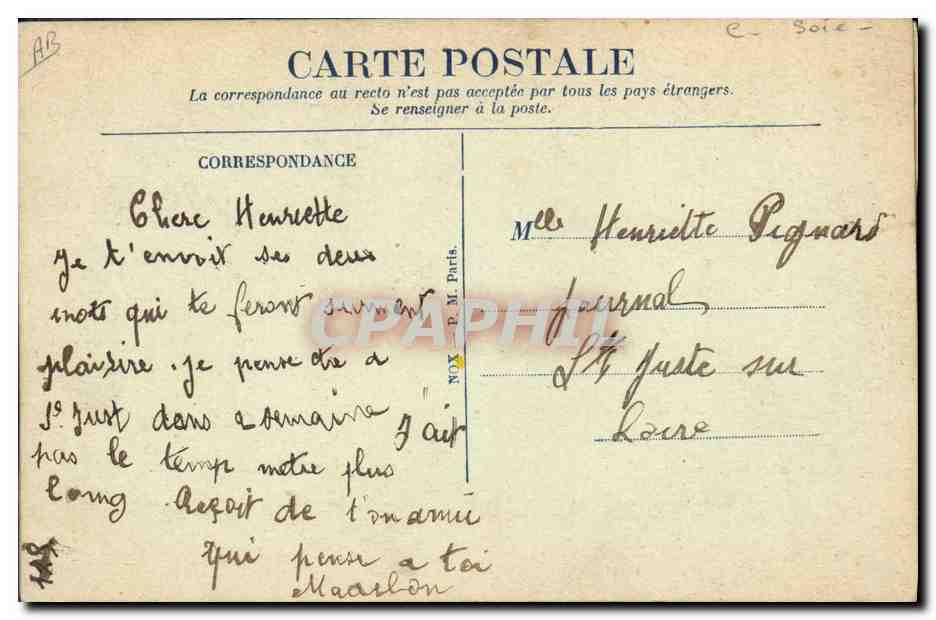 AB
C- Soie -
CARTE POSTALE
La correspondance au recto n'est pas acceptée par tous les pays étrangers.
Se renseigner à la poste.
CORRESPONDANCE
Chere Henriette
Je t'envoit ses deux
mots qui te feront surment
plaisire. je pense etre a
St Just dans a semaine J'ait
pas le temp metre plus
long Reçoit de t'on amie
Qui pense a toi
NOX P. M. Paris.
CPAPHIL
Mlle Henriette Pignard
Journal
Ste Juste sur
Loire